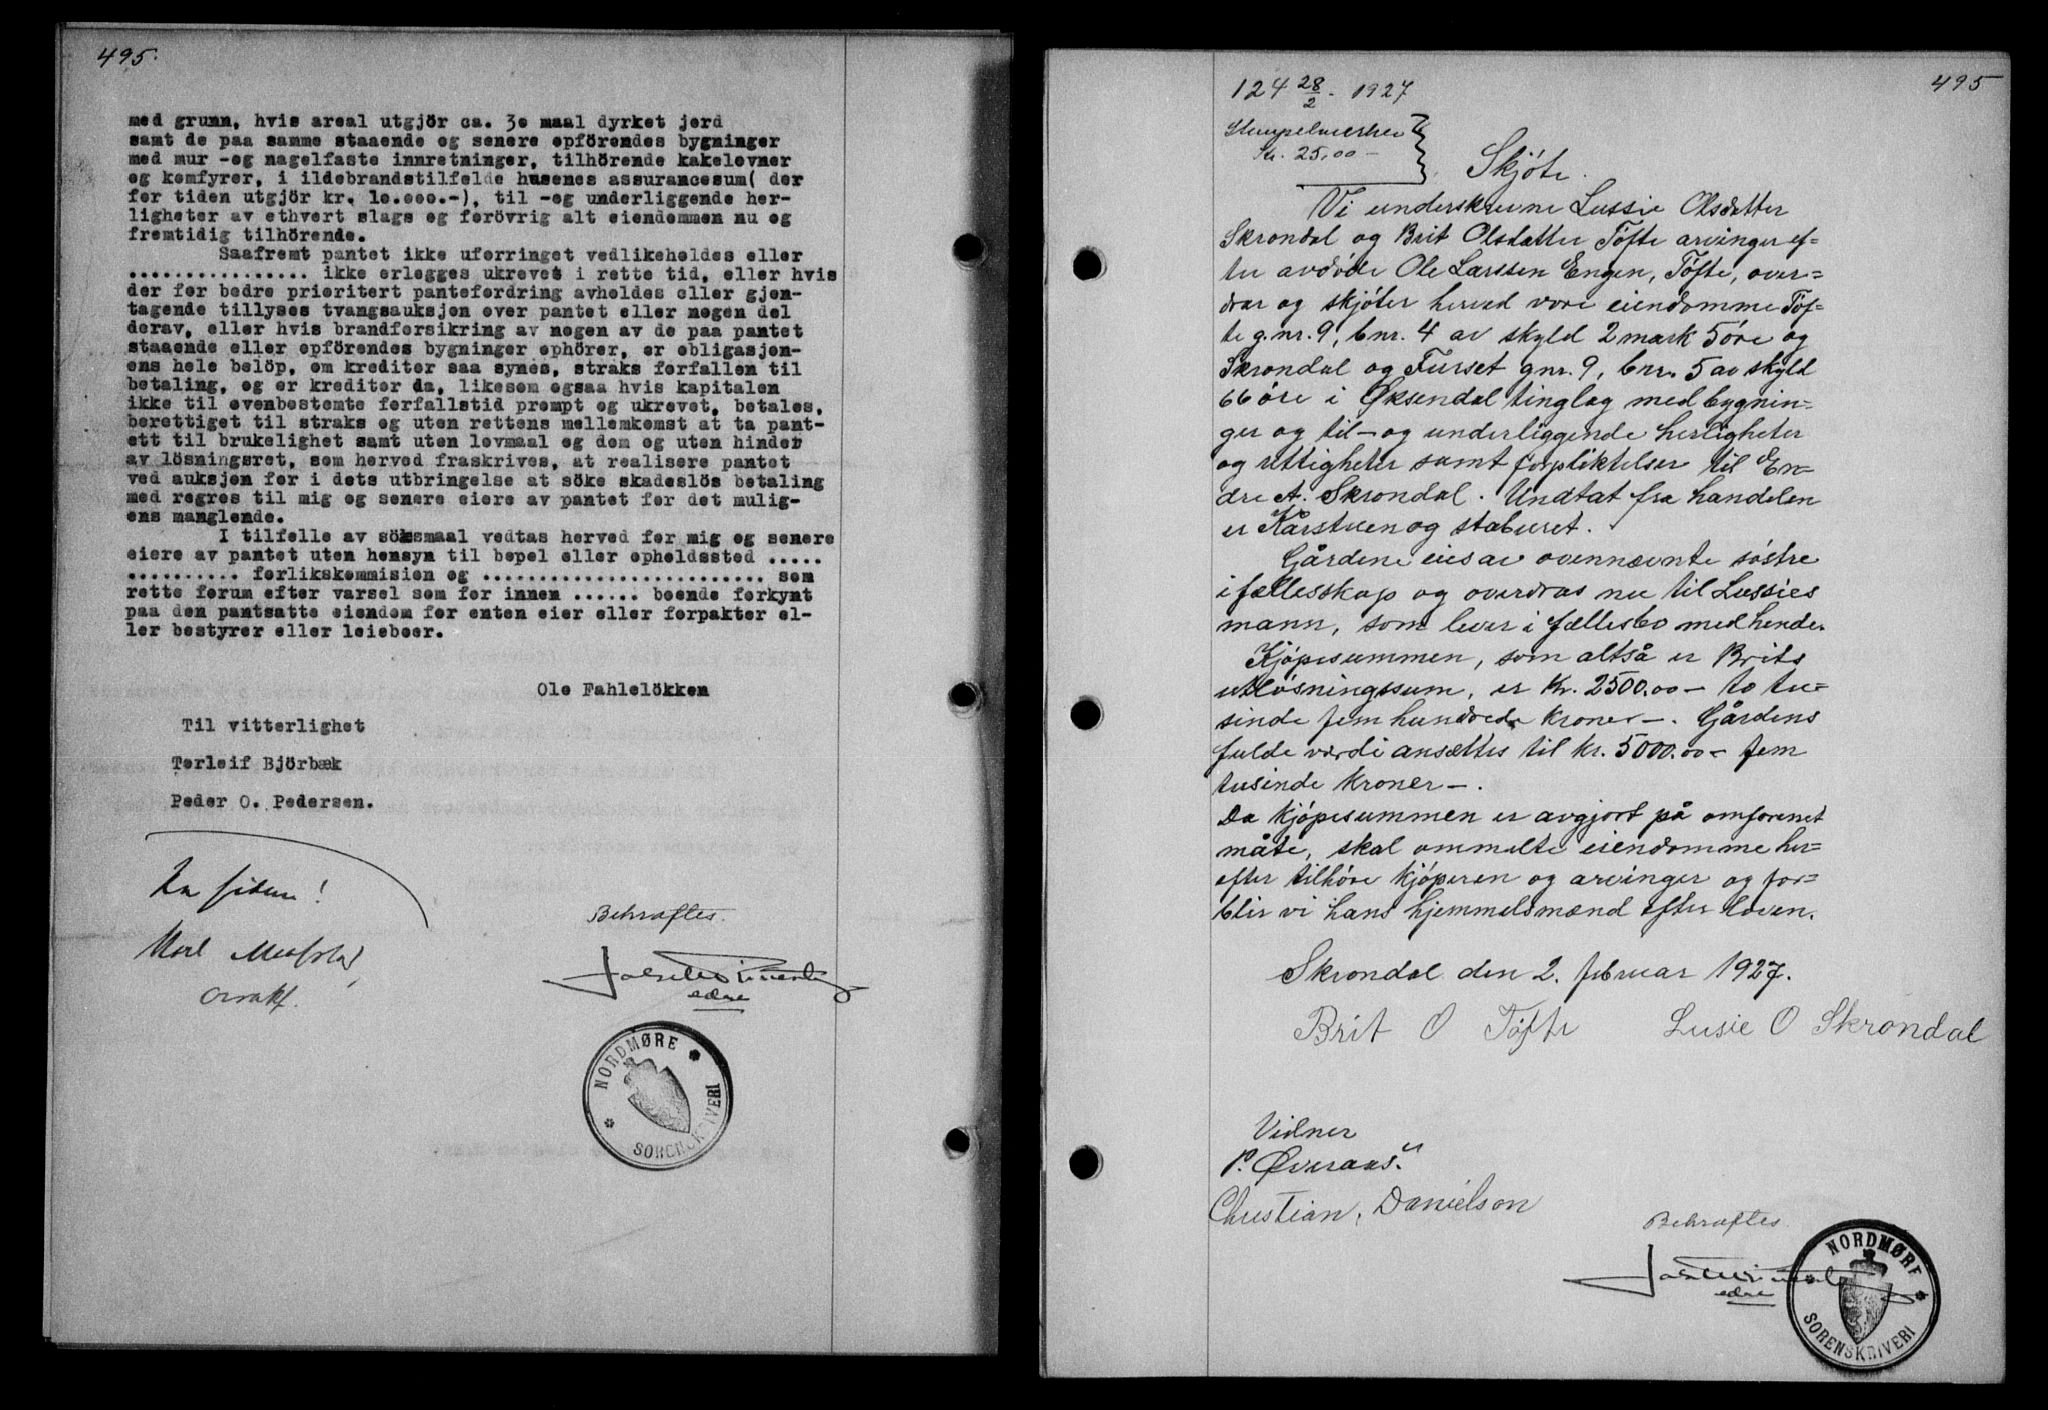 495.
med grunn, hvis areal utgjör ca. 3o maal dyrket jord
samt de paa samme staaende og senere opförendes bygninger
med mur -og nagelfaste innretninger, tilhörende kakelovner
og komfyrer, i ildebrandstilfelde husenes assurancesum( der
for tiden utgjör kr. lo.ooo.-), til -og underliggende her-
ligheter av ethvert slags og forövrig alt eiendommen nu og
fremtidig tilhörende.
Saafremt pantet ikke uforringet vedlikeholdes eller
................ ikke erlegges ukrevet i rette tid, eller hvis
der for bedre prioritert pantefordring avholdes eller gjen-
tagende tillyses tvangsauksjon over pantet eller nogen del
derav, eller hvis brandforsikring av nogen av de paa pantet
staaende eller opförendes bygninger ophörer, er obligasjon-
ens hele belöp, om kreditor saa synes, straks forfallen til
betaling, og er kreditor da, likesom ogsaa hvis kapitalen
ikke til ovenbestemte forfallstid prompt og ukrevet, betales,
berettiget til straks og uten rettens mellemkomst at ta pant-
ett til brukelighet samt uten lovmaal og dom og uten hinder
av lösningsret, som herved fraskrives, at realisere pantet
ved auksjon for i dets utbringelse at söke skadeslös betaling
med regres til mig og senere eiere av pantet for det mulig-
ens manglende.
I tilfelle av söksmaal vedtas herved for mig og senere
eiere av pantet uten hensyn til bopel eller opholdssted .....
.......... forlikskommision og ......................... som
rette forum efter varsel som for innen ...... boende forkynt
paa den pantsatte eiendom for enten eier eller forpakter el-
ler bestyrer eller leieboer.
Ole Fahlelökken
Til vitterlighet
Torleif Björbæk
Peder O. Pedersen.
Bekræftes.
edne
NORDMØRE
SORENSKRIVERI
495
124 28/2 - 1927
Stempelmerker
Kr. 25,00 -
Skjöte.
Vi underskrevne Lussie Olsdatter
Skrondal og Brit Olsdatter Töfte arvinger ef-
ter avdöde Ole Larssen Engen, Töfte, over-
drar og skjöter herved vore eiendomme Töf-
te g.nr. 9, bnr. 4 av skyld 2 mark 5 öre og
Skrondal og Furset gnr. 9, bnr. 5 av skyld
66 öre i Øksendal tinglag med bygnin-
ger og til- og underliggende herligheter
og rettigheter samt forpliktelser til En-
dre A. Skrondal. Undtat fra handelen
er Kårstuen og staburet.
Gårdene eies av ovennævnte söstre
i fællesskap og overdras nu til Lussies
mann, som lever i fællesbo med hende.
Kjöpesummen, som altså er Brits
utlösningssum, er Kr. 2500.00 - to tu-
sinde fem hundrede kroner -. Gårdens
fulde værdi ansættes til kr. 5000.00 - fem
tusinde kroner -.
Da kjöpesummen er avgjort på omforenet
måte, skal ommelte eiendomme her-
efter tilhöre kjöperen og arvinger og for-
blir vi hans hjemmelsmænd efter loven.
Skrondal den 2. februar 1927.
Brit O Töfte Lusie O Skrondal
Vidner
P. Øveraas.
Christian. Danielson
Bekræftes
edne
NORDMØRE
SORENSKRIVERI